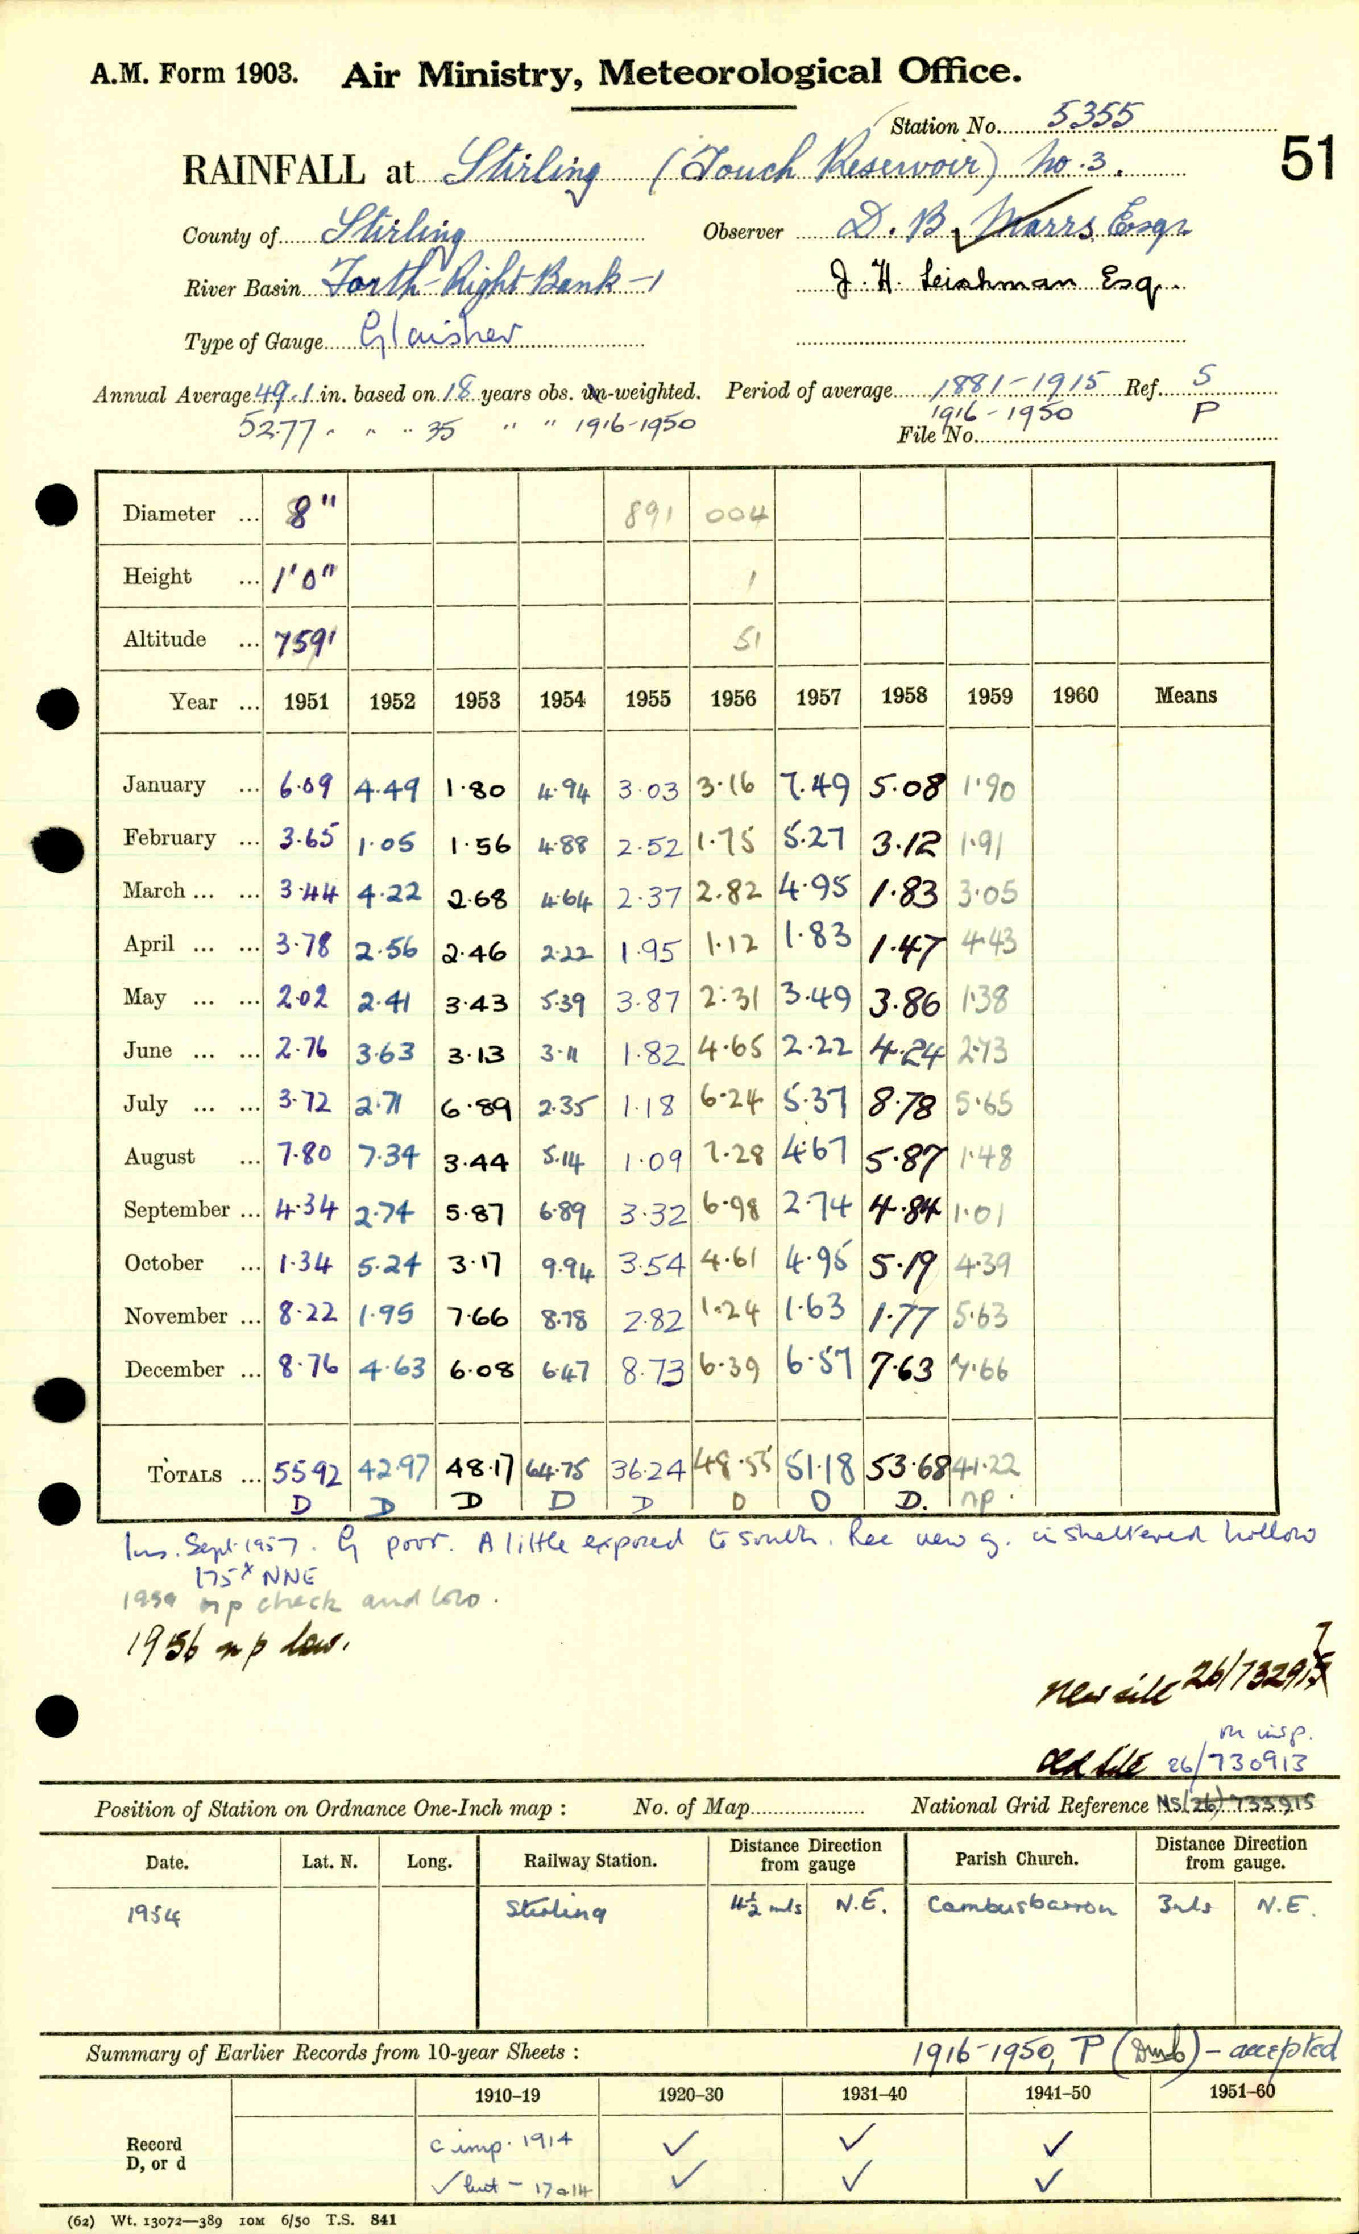 A.M. Form 1903. Air Ministry, Meteorological Office.
Station No. 5355
51
RAINFALL at Stirling (Touch Reservoir) No. 3.
County of Stirling Observer D. B. Marrs, Esqr
River Basin Forth-Right Bank-1 J. H. Leishman Esq.
Type of Gauge Glaisher
Annual Average 49.1 in. based on 18 years obs. un-weighted. Period of average 1881-1915 Ref. S
52.77 " " " 35 " " 1916-1950 1916-1950 P
File No.
Diameter ... 8" 891 004
Height ... 1'0" 1
Altitude ... 759' 51
Year ... 1951 1952 1953 1954 1955 1956 1957 1958 1959 1960 Means
January ... 6.09 4.49 1.80 4.94 3.03 3.16 7.49 5.08 1.90
February ... 3.65 1.05 1.56 4.88 2.52 1.75 5.27 3.12 1.91
March ... ... 3.44 4.22 2.68 4.64 2.37 2.82 4.95 1.83 3.05
April ... ... 3.78 2.56 2.46 2.22 1.95 1.12 1.83 1.47 4.43
May ... ... 2.02 2.41 3.43 5.39 3.87 2.31 3.49 3.86 1.38
June ... ... 2.76 3.63 3.13 3.11 1.82 4.65 2.22 4.24 2.73
July ... ... 3.72 2.71 6.89 2.35 1.18 6.24 5.37 8.78 5.65
August ... 7.80 7.34 3.44 5.14 1.09 7.28 4.67 5.87 1.48
September ... 4.34 2.74 5.87 6.89 3.32 6.98 2.74 4.84 1.01
October ... 1.34 5.24 3.17 9.94 3.54 4.61 4.95 5.19 4.39
November ... 8.22 1.95 7.66 8.78 2.82 1.24 1.63 1.77 5.63
December ... 8.76 4.63 6.08 6.47 8.73 6.39 6.57 7.63 7.66
TOTALS ... 55.92 42.97 48.17 64.75 36.24 48.55 51.18 53.68 41.22
D D D D D D D D. np.
Ins. Sept. 1957. G poor. A little exposed to south. Rec new g. in sheltered hollow
175x NNE
1959 np check and low.
1956 np low.
New site 26/732915 7
on insp.
Old site 26/730913
Position of Station on Ordnance One-Inch map : No. of Map National Grid Reference NS(26) 733915
Date. Lat. N. Long. Railway Station. Distance Direction from gauge Parish Church. Distance Direction from gauge.
1954 Stirling 4½ mls N.E. Cambusbarron 3mls N.E.
Summary of Earlier Records from 10-year Sheets : 1916-1950, P (Dmb) - accepted
1910-19 1920-30 1931-40 1941-50 1951-60
Record c imp. 1914 ✓ ✓ ✓
D, or d ✓ but - 17 a 14 ✓ ✓ ✓
(62) Wt. 13072—389 10M 6/50 T.S. 841